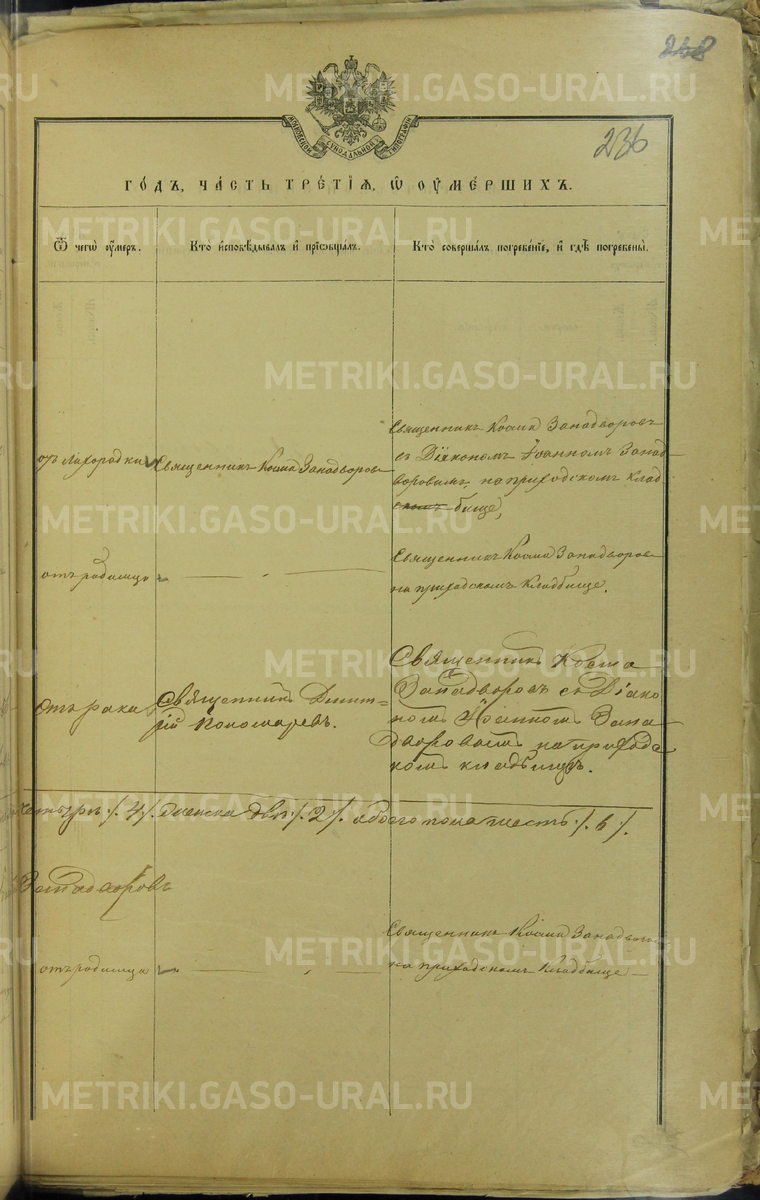 248
236
МОСКОВСКОЙ СѴНОДАЛЬНОЙ ТИПОГРАФІИ
ГО́ДЪ, ЧА́СТЬ ТРЕ́ТІѦ, Ѡ҆ ОУ҆МЕ́РШИХЪ.
Ѿ чегѡ̀ оу҆́меръ.
Кто̀ и҆сповѣ́дывалъ и҆ прїѻбща́лъ.
Кто̀ соверша́лъ погребе́нїе, и҆ гдѣ̀ погребены̀.
отъ лихорадки
Священникъ Косма Западворовъ
Священникъ Косма Западворовъ
съ Діакономъ Іоанномъ Запад-
воровымъ, на приходскомъ клад-
бище,
отъ родимца
Священникъ Косма Западворовъ
на приходскомъ Кладбище.
Отъ рака
Священникъ Димит-
рій Пономаревъ.
Священникъ Косма
Западворовъ съ Діако-
номъ Іоанномъ Запа-
дворовымъ на приходс-
комъ кладбищѣ.
четыре ./. 4 ./. женска двѣ ./. 2 ./. обоего пола шесть ./. 6 ./.
Западворовъ
отъ родимца
Священникъ Косма Западворовъ
на приходскомъ Кладбище
METRIKI.GASO-URAL.RU